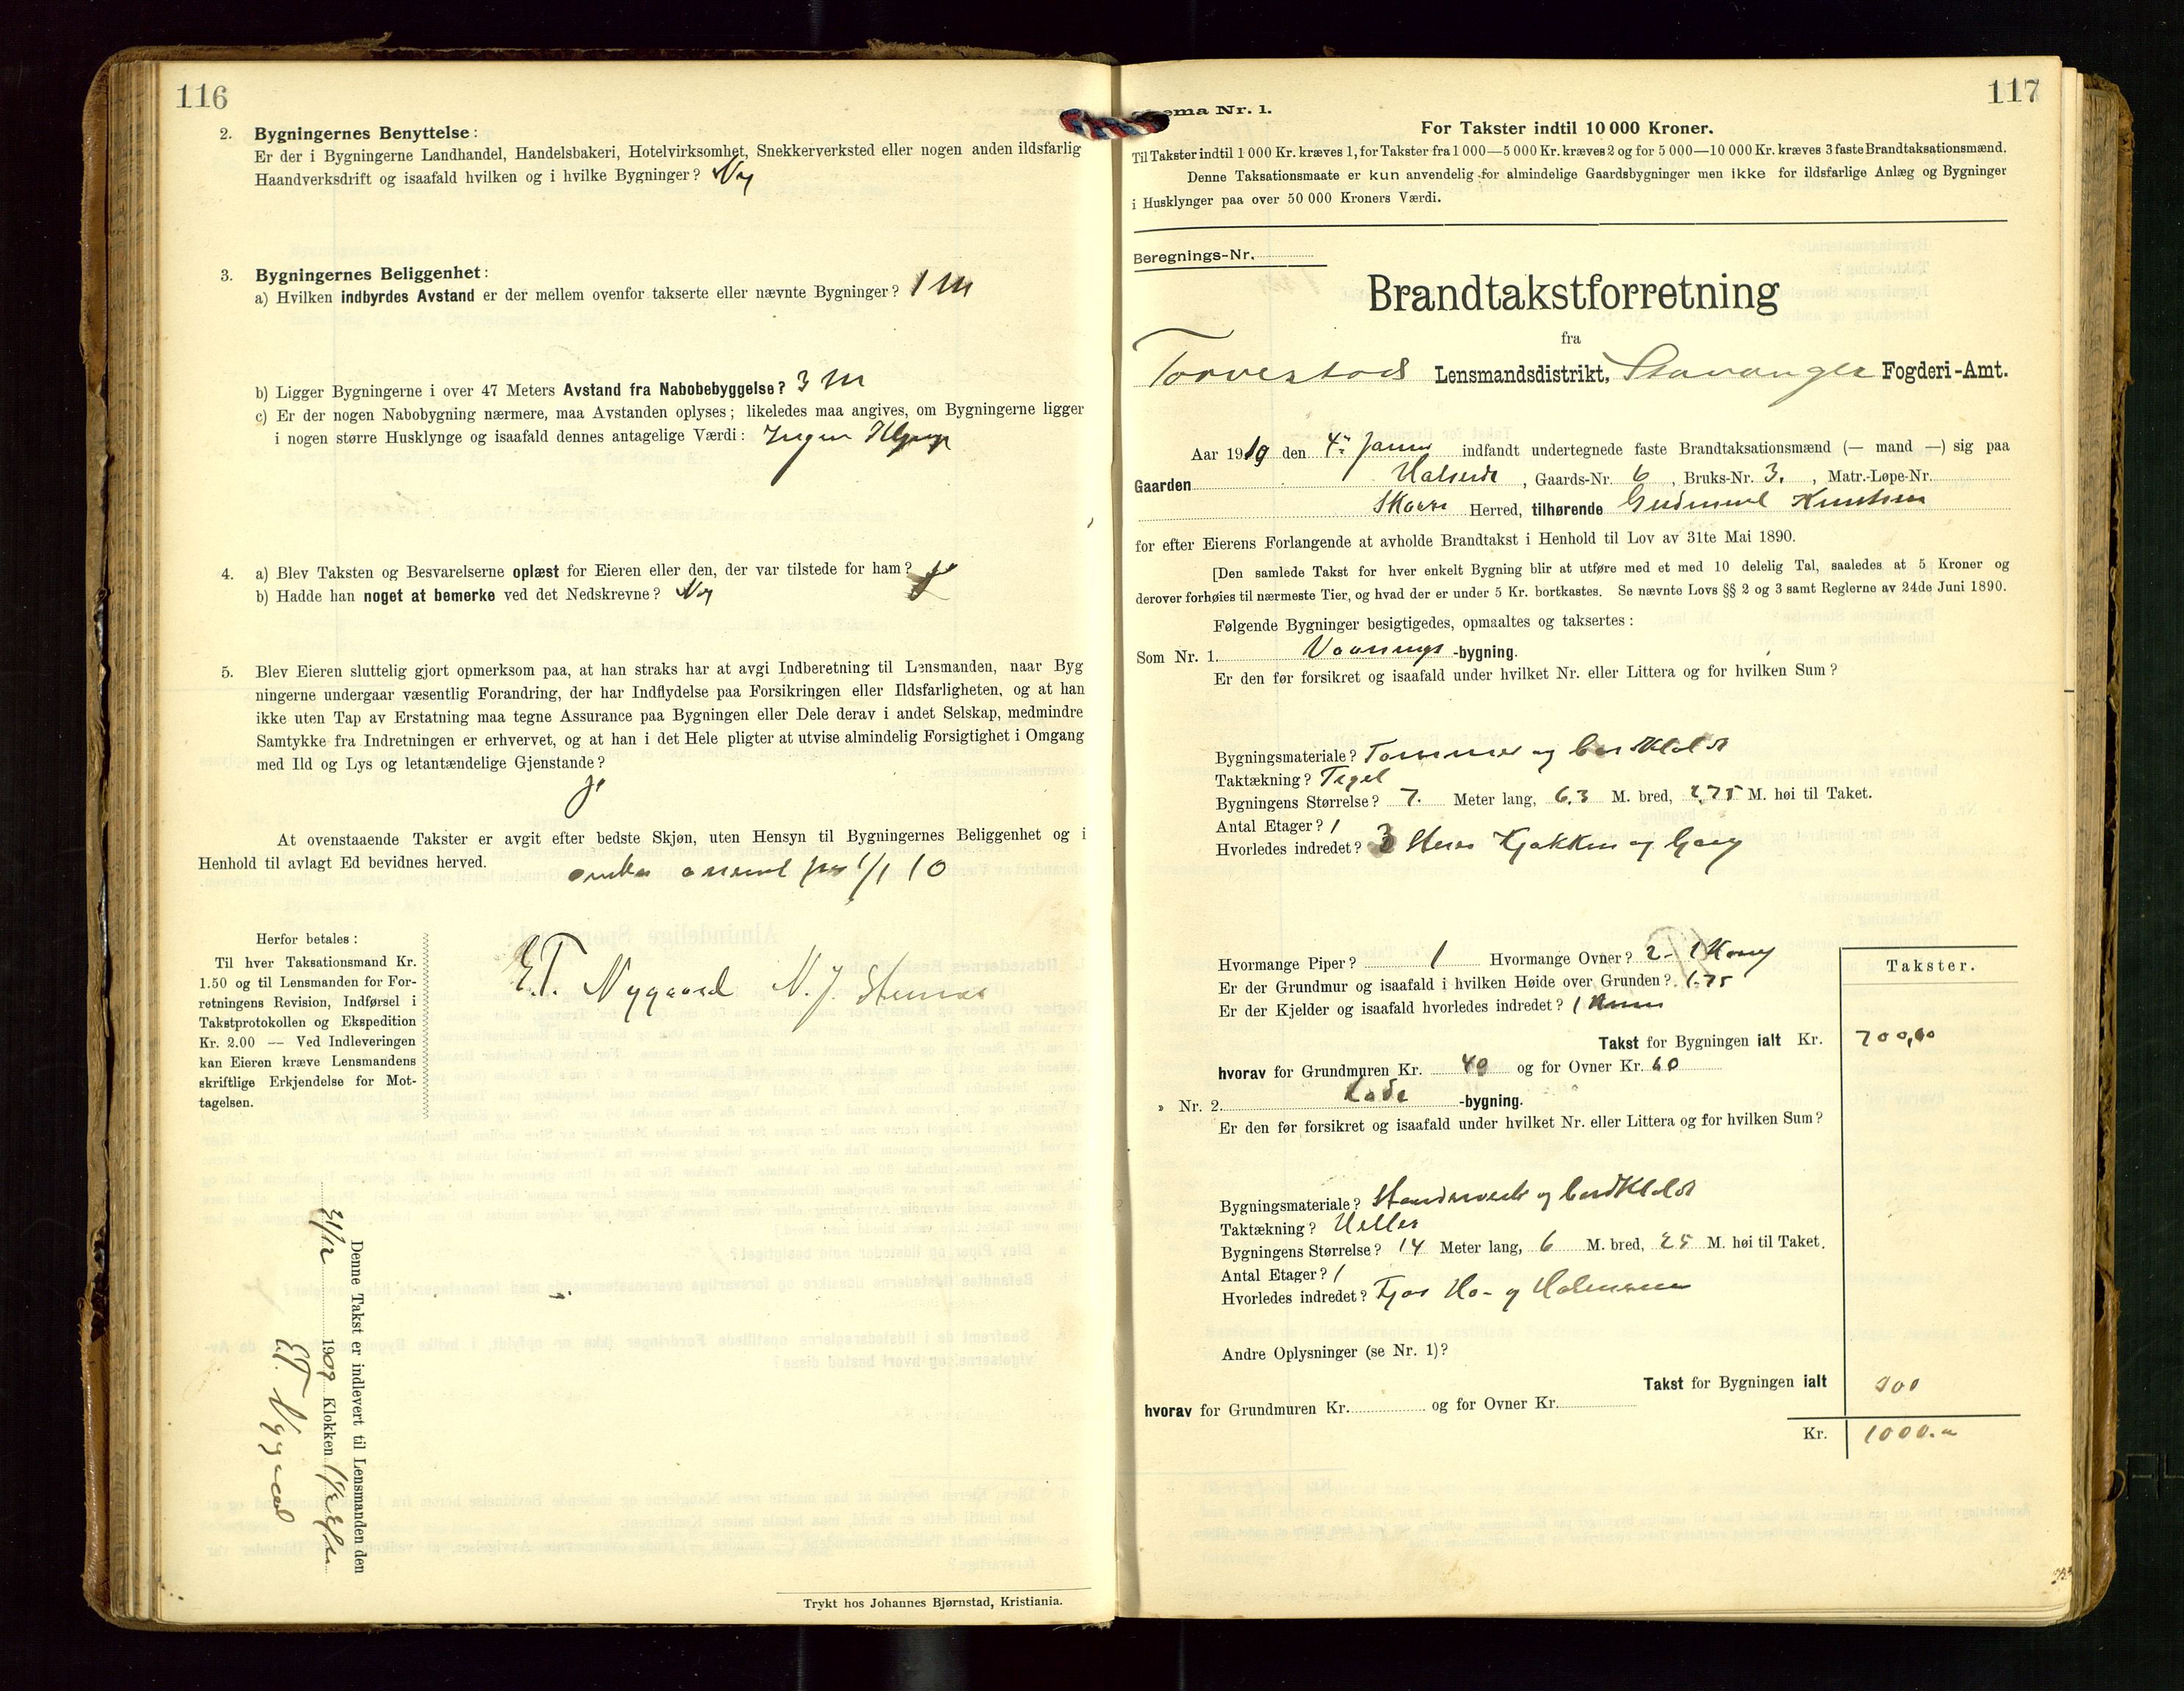 116
2. Bygningernes Benyttelse:
Er der i Bygningerne Landhandel, Handelsbakeri, Hotelvirksomhet, Snekkerverksted eller nogen anden ildsfarlig
Haandverksdrift og isaafald hvilken og i hvilke Bygninger? Nej
3. Bygningernes Beliggenhet:
a) Hvilken indbyrdes Avstand er der mellem ovenfor takserte eller nævnte Bygninger? 1 m
b) Ligger Bygningerne i over 47 Meters Avstand fra Nabobebyggelse? 3 m
c) Er der nogen Nabobygning nærmere, maa Avstanden oplyses; likeledes maa angives, om Bygningerne ligger
i nogen større Husklynge og isaafald dennes antagelige Værdi: Ingen
4. a) Blev Taksten og Besvarelserne oplæst for Eieren eller den, der var tilstede for ham? J
b) Hadde han noget at bemerke ved det Nedskrevne? Nej
5. Blev Eieren sluttelig gjort opmerksom paa, at han straks har at avgi Indberetning til Lensmanden, naar Byg
ningerne undergaar væsentlig Forandring, der har Indflydelse paa Forsikringen eller Ildsfarligheten, og at han
ikke uten Tap av Erstatning maa tegne Assurance paa Bygningen eller Dele derav i andet Selskap, medmindre
Samtykke fra Indretningen er erhvervet, og at han i det Hele pligter at utvise almindelig Forsigtighet i Omgang
med Ild og Lys og letantændelige Gjenstande?
Ja
At ovenstaaende Takster er avgit efter bedste Skjøn, uten Hensyn til Bygningernes Beliggenhet og i
Henhold til avlagt Ed bevidnes herved.
1/1 10
Herfor betales:
Til hver Taksationsmand Kr.
1.50 og til Lensmanden for For-
retningens Revision, Indførsel i
Takstprotokollen og Ekspedition
Kr. 2.00 — Ved Indleveringen
kan Eieren kræve Lensmandens
skriftlige Erkjendelse for Mot-
tagelsen.
E.T. Nygaard N. J.
Denne Takst er indlevert til Lensmanden den
1909 Klokken
E.T. Nygaard
Trykt hos Johannes Bjørnstad, Kristiania.
117
ema Nr. 1.
For Takster indtil 10 000 Kroner.
Til Takster indtil 1 000 Kr. kræves 1, for Takster fra 1 000—5 000 Kr. kræves 2 og for 5 000—10 000 Kr. kræves 3 faste Brandtaksationsmænd.
Denne Taksationsmaate er kun anvendelig for almindelige Gaardsbygninger men ikke for ildsfarlige Anlæg og Bygninger
i Husklynger paa over 50 000 Kroners Værdi.
Beregnings-Nr.
Brandtakstforretning
fra
Torvestad Lensmandsdistrikt, Stavanger Fogderi-Amt.
Aar 1910 den 4. indfandt undertegnede faste Brandtaksationsmænd (— mand —) sig paa
Gaarden , Gaards-Nr. 6 , Bruks-Nr. 3. , Matr.-Løpe-Nr.
Skaare Herred, tilhørende Gudmund Knutsen
for efter Eierens Forlangende at avholde Brandtakst i Henhold til Lov av 31te Mai 1890.
[Den samlede Takst for hver enkelt Bygning blir at utføre med et med 10 delelig Tal, saaledes at 5 Kroner og
derover forhøies til nærmeste Tier, og hvad der er under 5 Kr. bortkastes. Se nævnte Lovs §§ 2 og 3 samt Reglerne av 24de Juni 1890.
Følgende Bygninger besigtigedes, opmaaltes og taksertes:
Som Nr. 1. Vaanings -bygning.
Er den før forsikret og isaafald under hvilket Nr. eller Littera og for hvilken Sum?
Bygningsmateriale? Tømmer og bordklædt
Taktækning? Tegel
Bygningens Størrelse? 7. Meter lang, 6.3 M. bred, 2.75 M. høi til Taket.
Antal Etager? 1
Hvorledes indredet? 3 Stuer Kjøkken og Gang
Hvormange Piper? 1 Hvormange Ovner? 2
Er der Grundmur og isaafald i hvilken Høide over Grunden? 1.75
Er der Kjelder og isaafald hvorledes indredet? 1
Takster.
Takst for Bygningen ialt Kr. 700,00
hvorav for Grundmuren Kr. 40 og for Ovner Kr. 60
„ Nr. 2. Lade -bygning.
Er den før forsikret og isaafald under hvilket Nr. eller Littera og for hvilken Sum?
Bygningsmateriale? Stenderverk og bordklædt
Taktækning? Heller
Bygningens Størrelse? 14 Meter lang, 6 M. bred, 25 M. høi til Taket.
Antal Etager? 1
Hvorledes indredet? Fjøs Hø- og
Andre Oplysninger (se Nr. 1)?
Takst for Bygningen ialt 300
hvorav for Grundmuren Kr. og for Ovner Kr.
Kr. 1000.